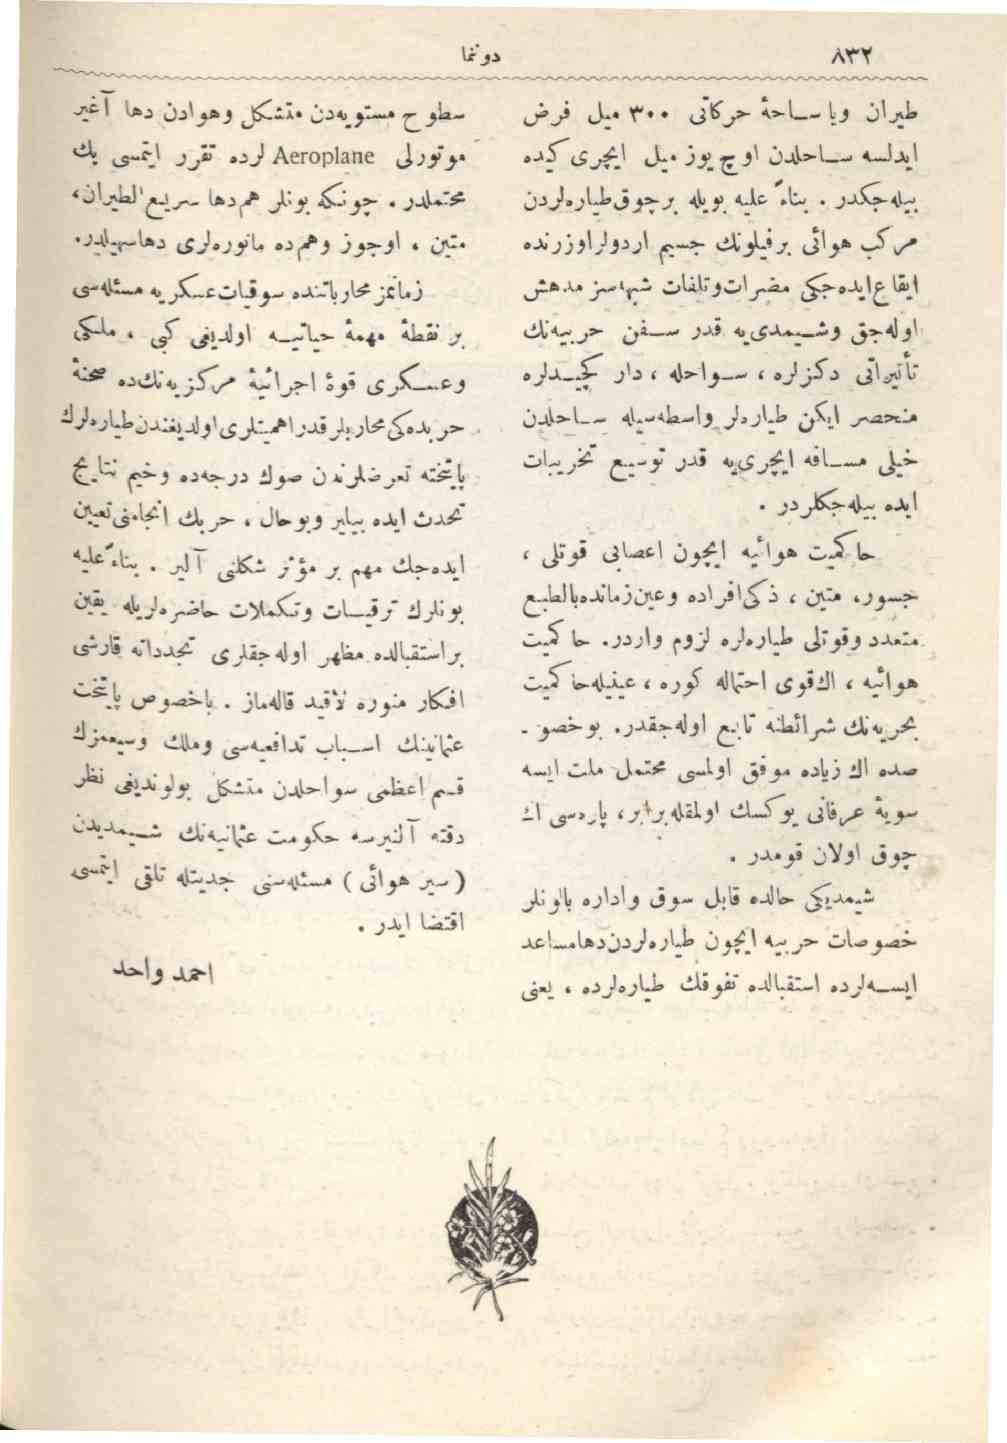 ٨٣٢
دوننما
طيران ويا ساحهٔ حركاتى ٣٠٠ ميل فرض
ايدلسه ساحلدن اوچ يوز ميل ايچرى كيده
بيله‌جكدر . بناءً عليه بويله برچوق طياره‌لردن
مركب هوائى برفيلونك جسيم اردولراوزرنده
ايقاع‌ايده‌جكى مضرات‌وتلفات شبهه‌سز مدهش
اوله‌جق وشيمدى‌يه قدر سفن حربيه‌نك
تأثيراتى دكزلره ، سواحله ، دار كچيدلره
منحصر ايكن طياره‌لر واسطه‌سيله ساحلدن
خيلى مسافه ايچرى‌يه قدر توسيع تخريبات
ايده بيله‌جكلردر .
حاكميت هوائيه ايچون اعصابى قوتلى ،
جسور، متين ، ذكى‌افراده وعين‌زمانده‌بالطبع
متعدد وقوتلى طياره‌لره لزوم واردر. حاكميت
هوائيه ، اك‌قوى احتماله كوره ، عينيله‌حاكميت
بحريه‌نك شرائطنه تابع اوله‌جقدر. بوخصو -
صده اك زياده موفق اولمسى محتمل ملت ايسه
سويهٔ عرفانى يوكسك اولمقله‌برابر، پاره‌سى اك
چوق اولان قومدر .
شيمديكى حالده قابل سوق واداره بالونلر
خصوصات حربيه ايچون طياره‌لردن‌دهامساعد
ايسه‌لرده استقبالده تفوقك طياره‌لرده ، يعنى
سطوح مستويه‌دن متشكل وهوادن دها آغير
موتورلى Aeroplane لرده تقرر ايتمسى پك
محتملدر . چونكه بونلر هم‌دها سريع‌الطيران،
متين ، اوجوز وهم‌ده مانوره‌لرى دهاسهيلدر.
زمانمز محارباتنده سوقيات‌عسكريه مسئله‌سى
بر نقطهٔ مهمهٔ حياتيه اولديغى كبى ، ملكى
وعسكرى قوهٔ اجرائيهٔ مركزيه‌نك‌ده صحنهٔ
حربده‌كى‌محاربلرقدراهميتلرى‌اولديغندن‌طياره‌لرك
پايتخته تعرضلرندن صوك درجه‌ده وخيم نتايج
تحدث ايده بيلير وبوحال ، حربك انجامنى‌تعيين
ايده‌جك مهم بر مؤثر شكلنى آلير . بناءً عليه
بونلرك ترقيات وتكملات حاضره‌لريله يقين
براستقبالده مظهر اوله‌جقلرى تجدداته قارشى
افكار منوره لاقيد قاله‌ماز . باخصوص پايتخت
عثمانينك اسباب تدافعيه‌سى وملك وسيعمزك
قسم اعظمى سواحلدن متشكل بولونديغى نظر
دقته آلنيرسه حكومت عثمانيه‌نك شيمديدن
( سير هوائى ) مسئله‌سنى جديتله تلقى ايتمسى
اقتضا ايدر .
احمد واحد